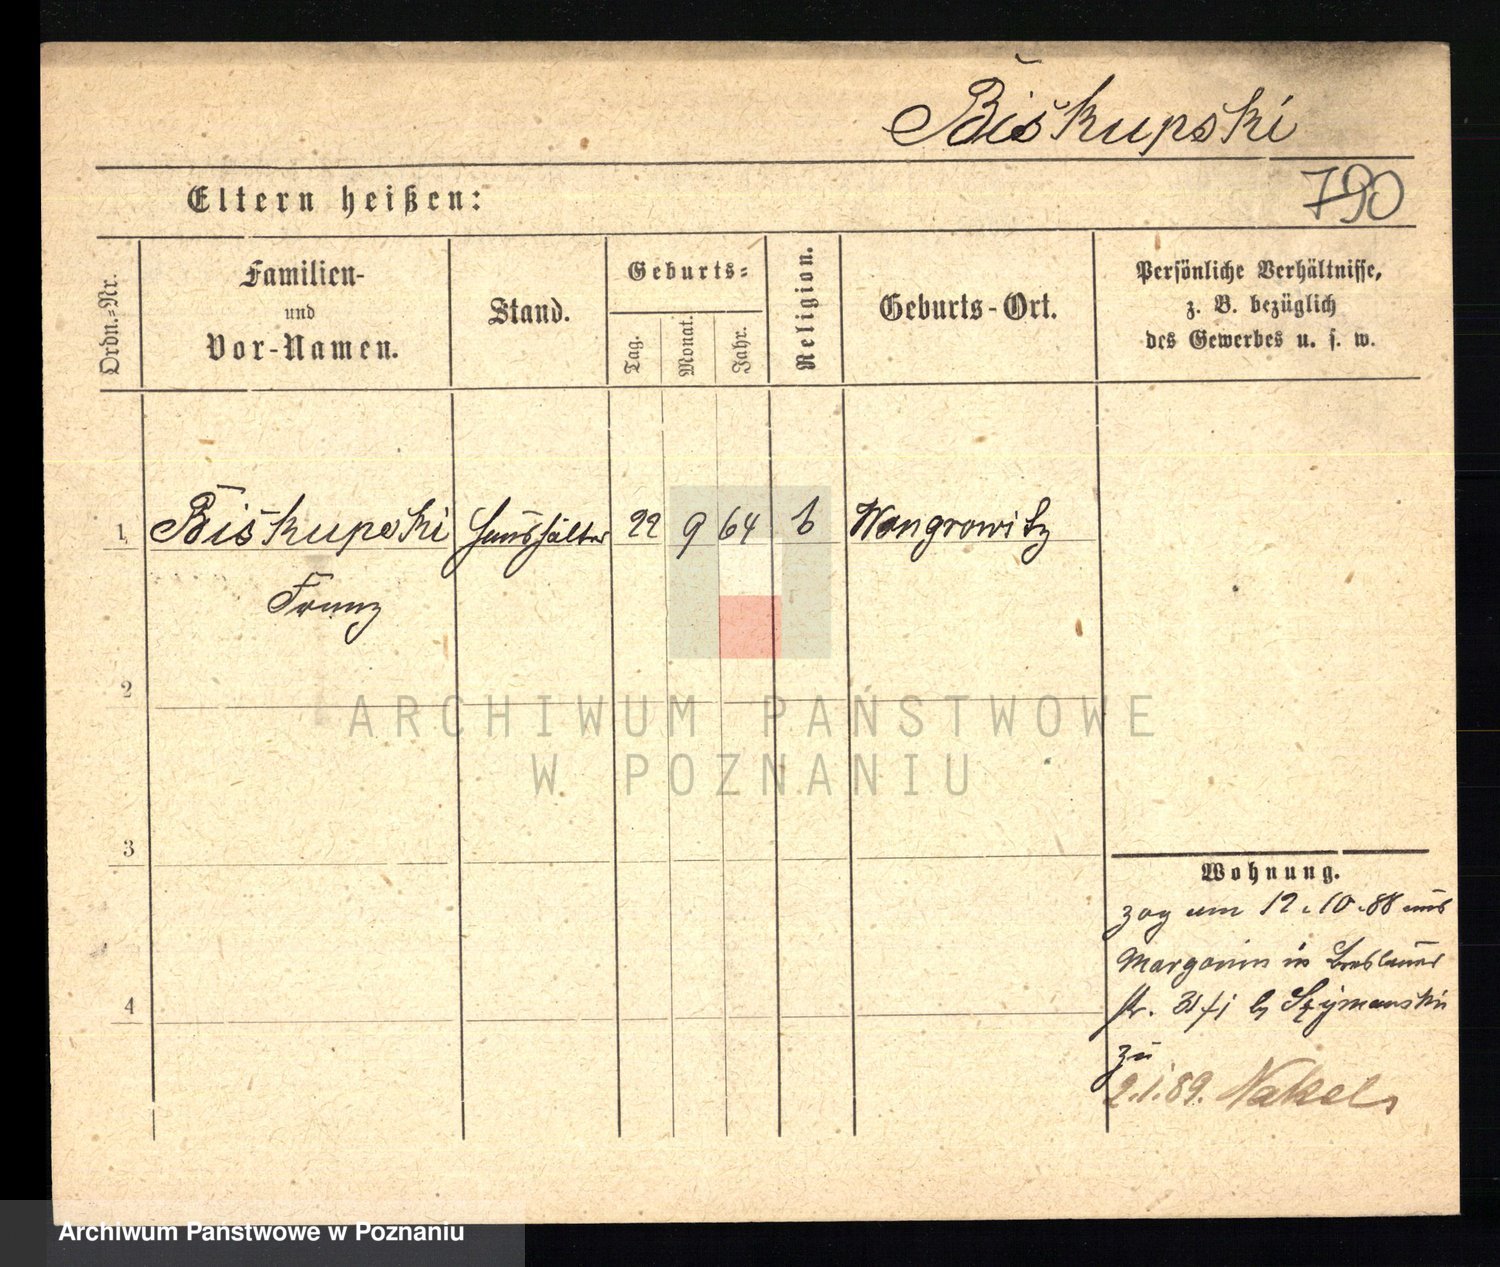 Biskupski
790
Eltern heißen:
Ordn.-Nr.
Familien-
und
Vor-Namen.
Stand.
Geburts-
Tag.
Monat.
Jahr.
Religion.
Geburts-Ort.
Persönliche Verhältnisse,
z. B. bezüglich
des Gewerbes u. s. w.
1 Biskupski Haushälter 22 9 64 Wongrowitz
Franz
2
ARCHIWUM PAŃSTWOWE
W POZNANIU
3
Wohnung.
zog am 12.10.88 aus
Margonin in Breslauer
4
str. 31/I b Szymanski
zu
2.1.89. Nakel
Archiwum Państwowe w Poznaniu